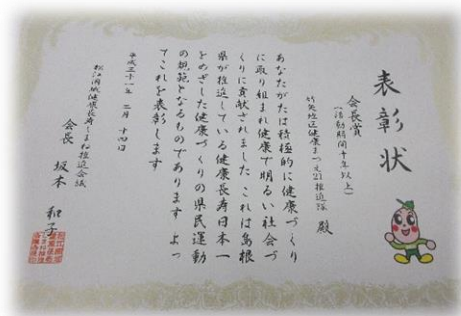 表彰状
会長賞
(活動期間十年以上)
竹矢地区健康まつえ21推進隊 殿
あなたがたは積極的に健康づくり
に取り組まれ健康で明るい社会づ
くりに貢献されました これは島根
県が推進している健康長寿日本一
をめざした健康づくりの県民運動
の規範となるものであります よっ
てこれを表彰します
平成三十一年 二月 十四日
松江圏域健康長寿しまね推進会議
会長 坂本 和子